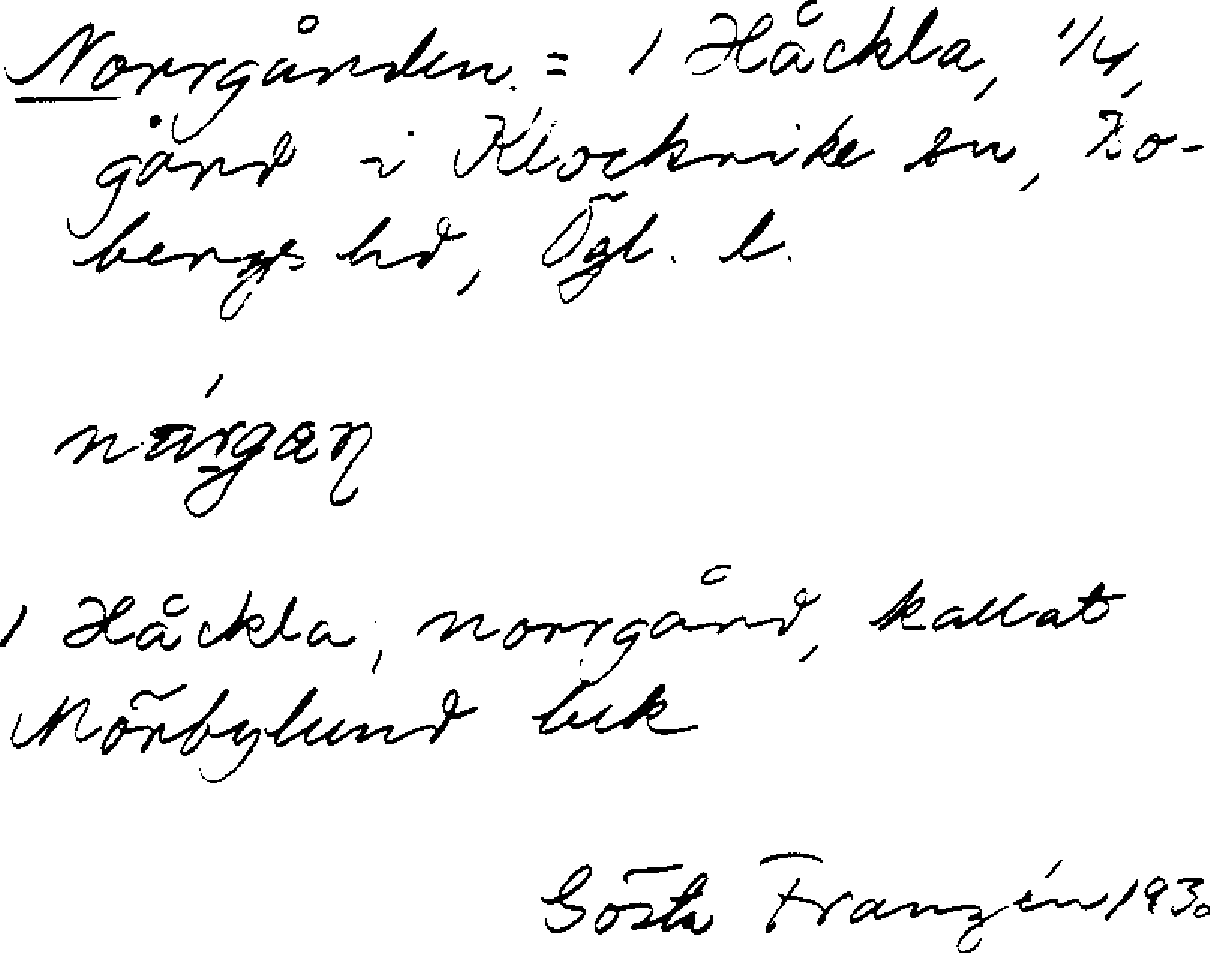 Norrgården = 1 Håckla, 1/4,
gård i Klockrike sn, Bo-
bergs hd, Ögl. l.
1 Håckla, norrgård, kallat
Mörbylund
Gösta Franzén 1930